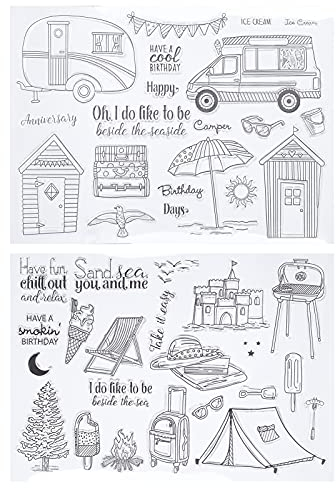 ICE CREAM
Ice Cream
HAVE A
cool
BIRTHDAY
Happy
Oh, I do like to be
beside the seaside
Anniversary
Camper
Birthday
Days
Have fun,
chill out
and relax
Sand, sea,
you and me
HAVE A
smokin'
BIRTHDAY
Take it easy
I do like to be
beside the sea